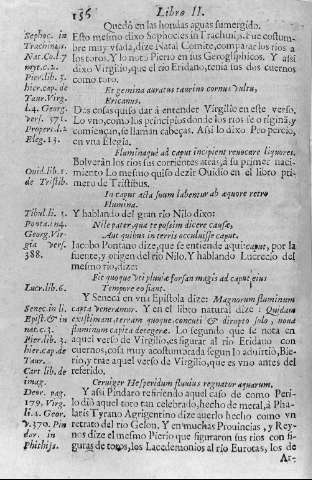 156 Libro II.
Quedò en las hondas aguas sumergido.
Sephoc. in Esto mesmo dixo Sophocles in Trachinijs, fue costum-
Trachinijs. bre muy vsada, dize Natal Comite, comparar los rios a
Nat. Co. l. 7 los toros. Y lo notò Pierio en sus Geroglyphicos. Y assi
myt. c. 2. dixo Virgilio, que el rio Eridano, tenia sus dos cuernos
Pier. lib. 3. como toro.
hier. cap. de Et gemina auratus taurino cornua vultu,
Taur. Virg. Ericanus.
l. 4. Georg Dos cosas quiso dar à entender Virgilio en este verso,
vers. 371. Lo vno, como los principios donde los rios se origina, y
Propert. l. 2 comiençan, se llaman cabeças. Assi lo dixo Propercio,
Eleg. 13. en vna Elegia.
Fluminaque ad caput incipient revocare liquores.
Bolveràn los rios sus corrientes atras, à su primer naci-
Ouid. lib. 1. miento Lo mesmo quiso dezir Ouidio en el libro pri-
de Tristib. mero de Tristibus.
In caput alta suum labentur ab aequore retro
Flumina.
Tibul. li. 1. Y hablando del gran rio Nilo dixo:
Ponta. in 4. Nile pater, quate possim dicere causa,
Georg. Vir- Aut quibus in terris occuluisse caput.
gia vers. Iacobo Pontano dize, que se entiende aqui caput, por la
388. fuente, y origen del rio Nilo. Y hablando Lucrecio del
mesmo rio, dize:
Fit quoque vti pluviae forsan magis ad caput eius
Lucr. lib. 6. Tempore eo fiant.
Y Seneca en vna Epistola dize: Magnorum fluminum
Senec. in li. capita veneramur. Y en el libro natural dize: Quidam
Epist. & in existimant, terram quoque concuti & dirupto solo, nova
nat. c. 3. fluminum capita detegere. Lo segundo que se nota en
Pier. lib. 3. aquel verso de Virgilio, es figurar al rio Eridano con
hier. cap. de cuernos, cosa muy acostumbrada segun lo aduirtiò, Pie-
Taur. rio, y trae aquel verso de Virgilio, que es vno antes del
Cart. lib. de referido.
imag. Corniger Hesperidum fluvius regnator aquarum.
Deor. pag. Y assi Pindaro refiriendo aquel caso de como Peri-
179. Virg. lo diò aquel toro tan celebrado, hecho de metal, à Pha-
li. 4. Geor. laris Tyrano Agrigentino dize auerlo hecho como vn
v. 370. Pin retrato del rio Gelon. Y en muchas Prouincias, y Rey-
dor. in nos dize el mesmo Pierio que figuraron sus rios con fi-
phichijs. guras de toros, los Lacedemonios al rio Eurotas, los de
Ar-